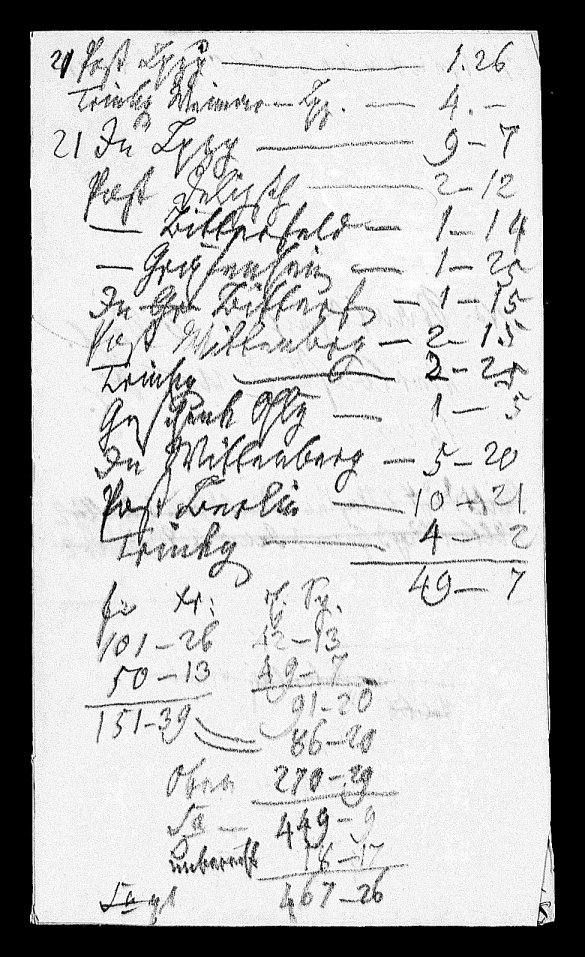 21 Post Lpzg. — 1.26
Trinkg Weimar — Lpz. — 4. —
21 In Lpzg — 9 — 7
Post Delitzsch — 2 — 12
— Bitterfeld — 1 — 14
— Gräfenhain — 1 — 25
In Bitterf — 1 — 15
Post Wittenberg — 2 — 15
Trinkg — 2 — 25
Geschenk — 1 — 5
In Wittenberg — 5 — 20
Post Berlin — 10 — 21
Trinkg — 4 — 2
49 — 7
fr Xr: rf. Sg.
101 — 26 42 — 13
50 — 13 49 — 7
151 — 39 91 — 20
86 — 20
Oben 270 — 29
Sa — 449 — 9
unberech 18 — 17
467 — 26